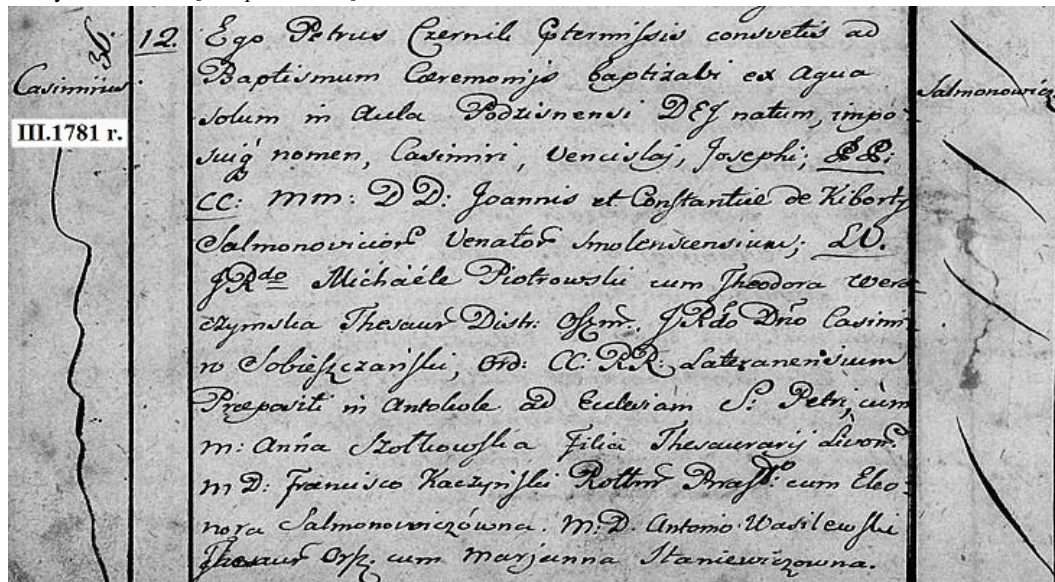 36.
Casimirus
III.1781 r.
12. Ego Petrus Czernik Ptermissis consvetis ad
Baptismum Cæremonijs baptizavi ex Aqua
solum in Aula Podzisnensi DEJ natum, impo
suiq nomen, Casimiri, Vencislaj, Josephi; PP:
CC: MM: DD: Joannis et Constantiæ de Kiborty
Salmonovicior Venator Smolenscensium; LL.
JRdo Michaéle Piotrowski cum Theodora Were
czymska Thesaur Distr: Oszm. JRdo Dno Casimi
ro Sobieszczański, Ord: CC: RR: Lateranensium
Præpositi in Antokole ad Eclesiam S: Petri, cùm
M: Anna Szołkowska Filia Thesaurarij Livon.
M D: Francisco Kaczyński Rottm cum Eleo
nora Salmonowiczówna. M: D. Antonio Wasilewski
Thesaur Orsz. cum Marjanna Staniewiczowna.
Salmonowicz